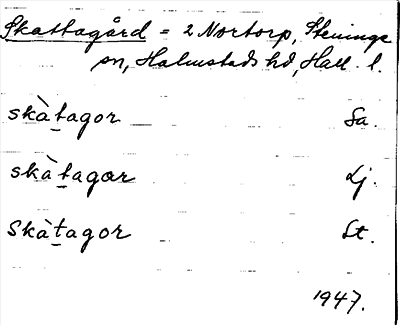 Skattagård = 2 Nortorp, Steninge
sn, Halmstads hd, Hall. l.
skàtagor Sa.
skàtagær Lj.
Skàtagor St.
1947.